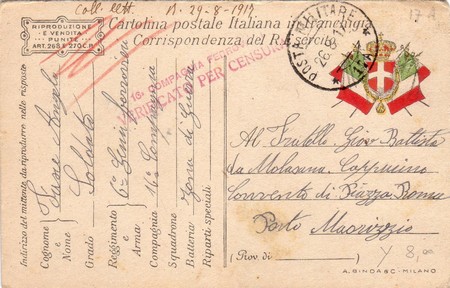 Coll. lett. A. 29-8-1917
17
RIPRODUZIONE
E VENDITA
PUNITE
ART. 265 E 270 C.P.
Cartolina postale Italiana in franchigia
Corrispondenza del R. Esercito
POSTA MILITARE
26.8.17
16ª COMPAGNIA
VERIFICATO PER CENSURA
Indirizzo del mittente da riprodurre nelle risposte
Cognome e Nome Angelo
Grado Soldato
Reggimento e Arma: 6° Genio ferrovieri
Compagnia 16ª Compagnia
Squadrone
Batteria: Zona di Guerra
Riparti speciali
Al Fratello Giov Battista
da Molasana Cappucino
Convento di Piazza Roma
Porto Maorizzio
(Prov. di )
8,00
A. GINO & C - MILANO